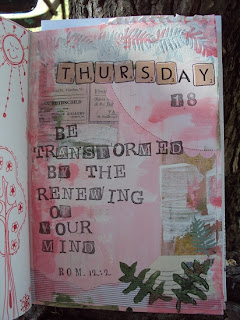 THURSDAY
18
BE
TRANSFORMED
BY THE
RENEWING
OF
YOUR
MIND
ROM. 12:12.